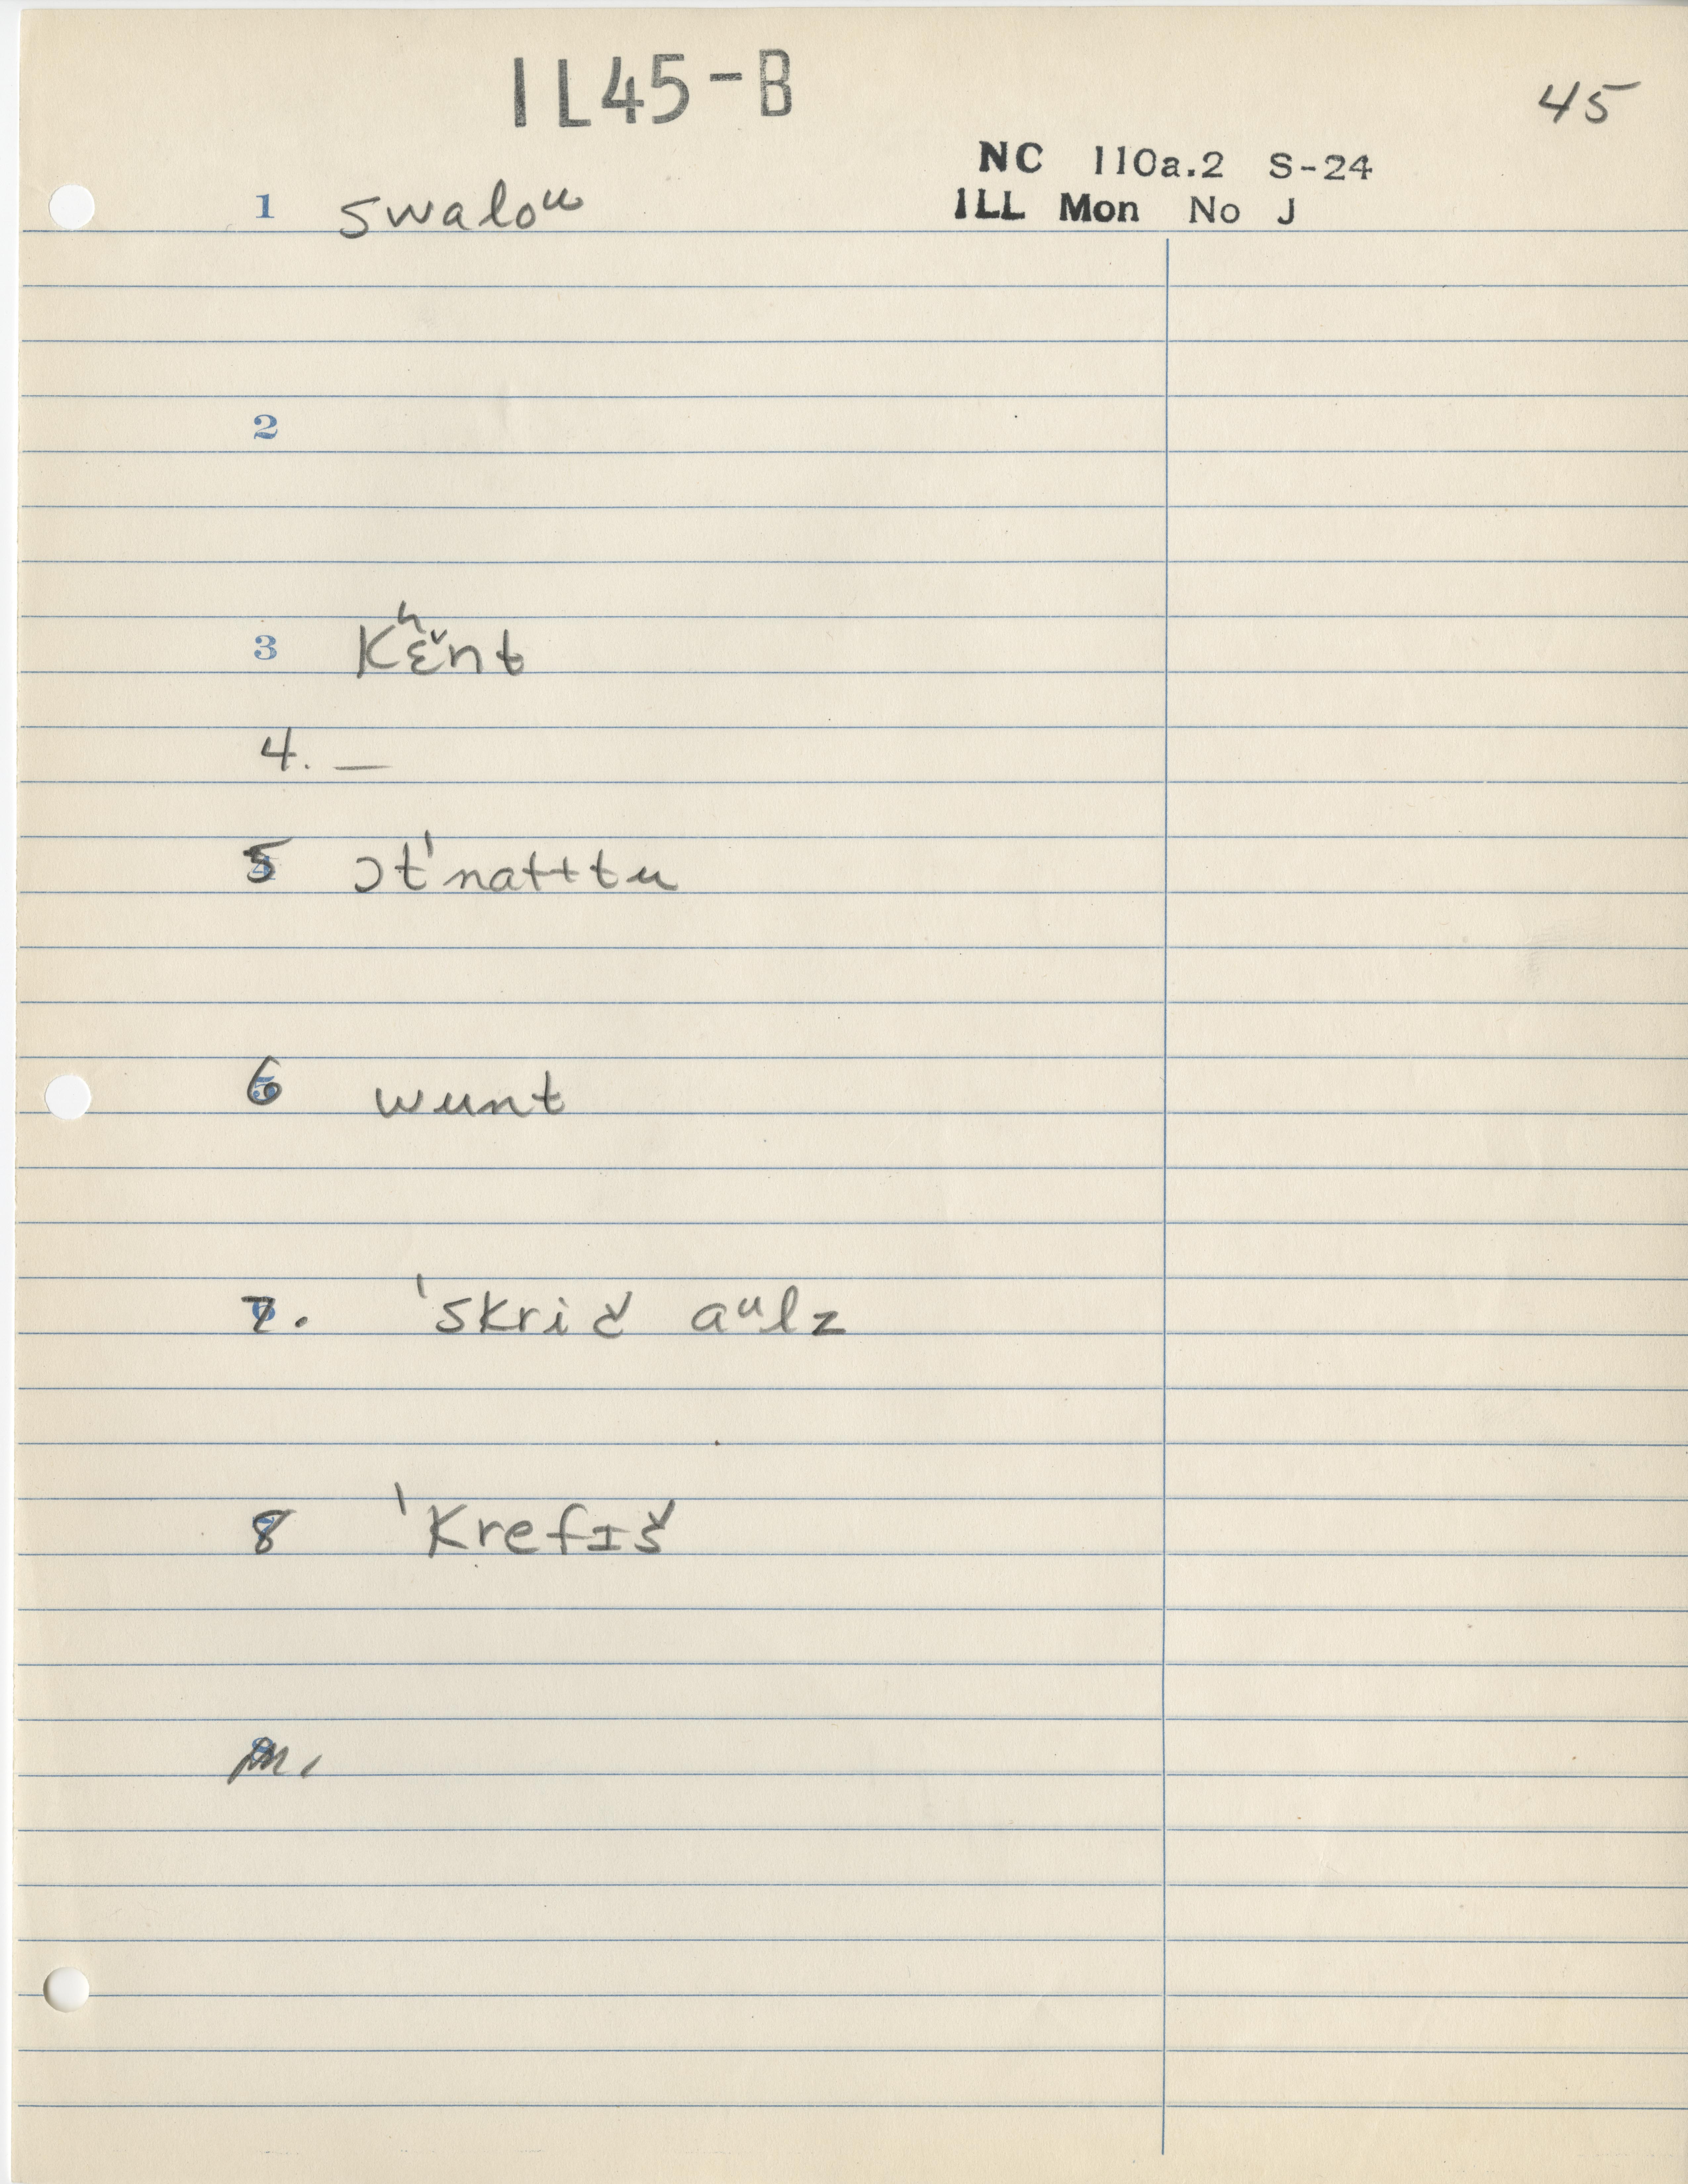 IL45-B
45
NC 110a.2 S-24
ILL Mon No J
1 swaloᵘ
2
3 Kʰɛ̌nt
4. —
5 ɔt'natttu
6 wunt
7. 'skrič aᵘlz
8 'krefɪš